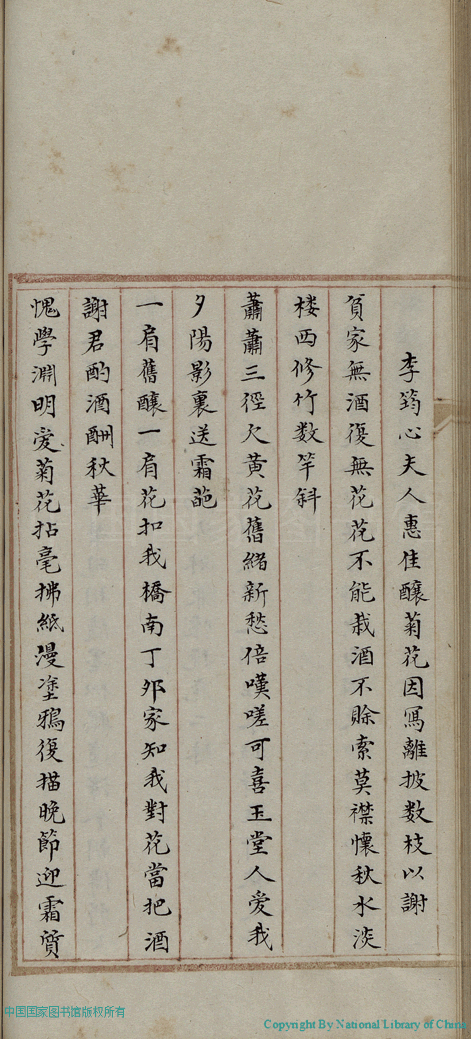 李筠心夫人惠佳釀菊花因寫離披数枝以謝
貧家無酒復無花花不能栽酒不賒索莫襟懷秋水淡
楼西修竹数竿斜
蕭蕭三徑欠黄花舊緒新愁倍嘆嗟可喜玉堂人愛我
夕陽影裏送霜葩
一肩舊釀一肩花扣我橋南丁卯家知我對花當把酒
謝君酌酒酬秋華
愧學淵明爱菊花拈毫拂紙漫塗鴉復描晚節迎霜質
中国国家图书馆版权所有
Copyright By National Library of China